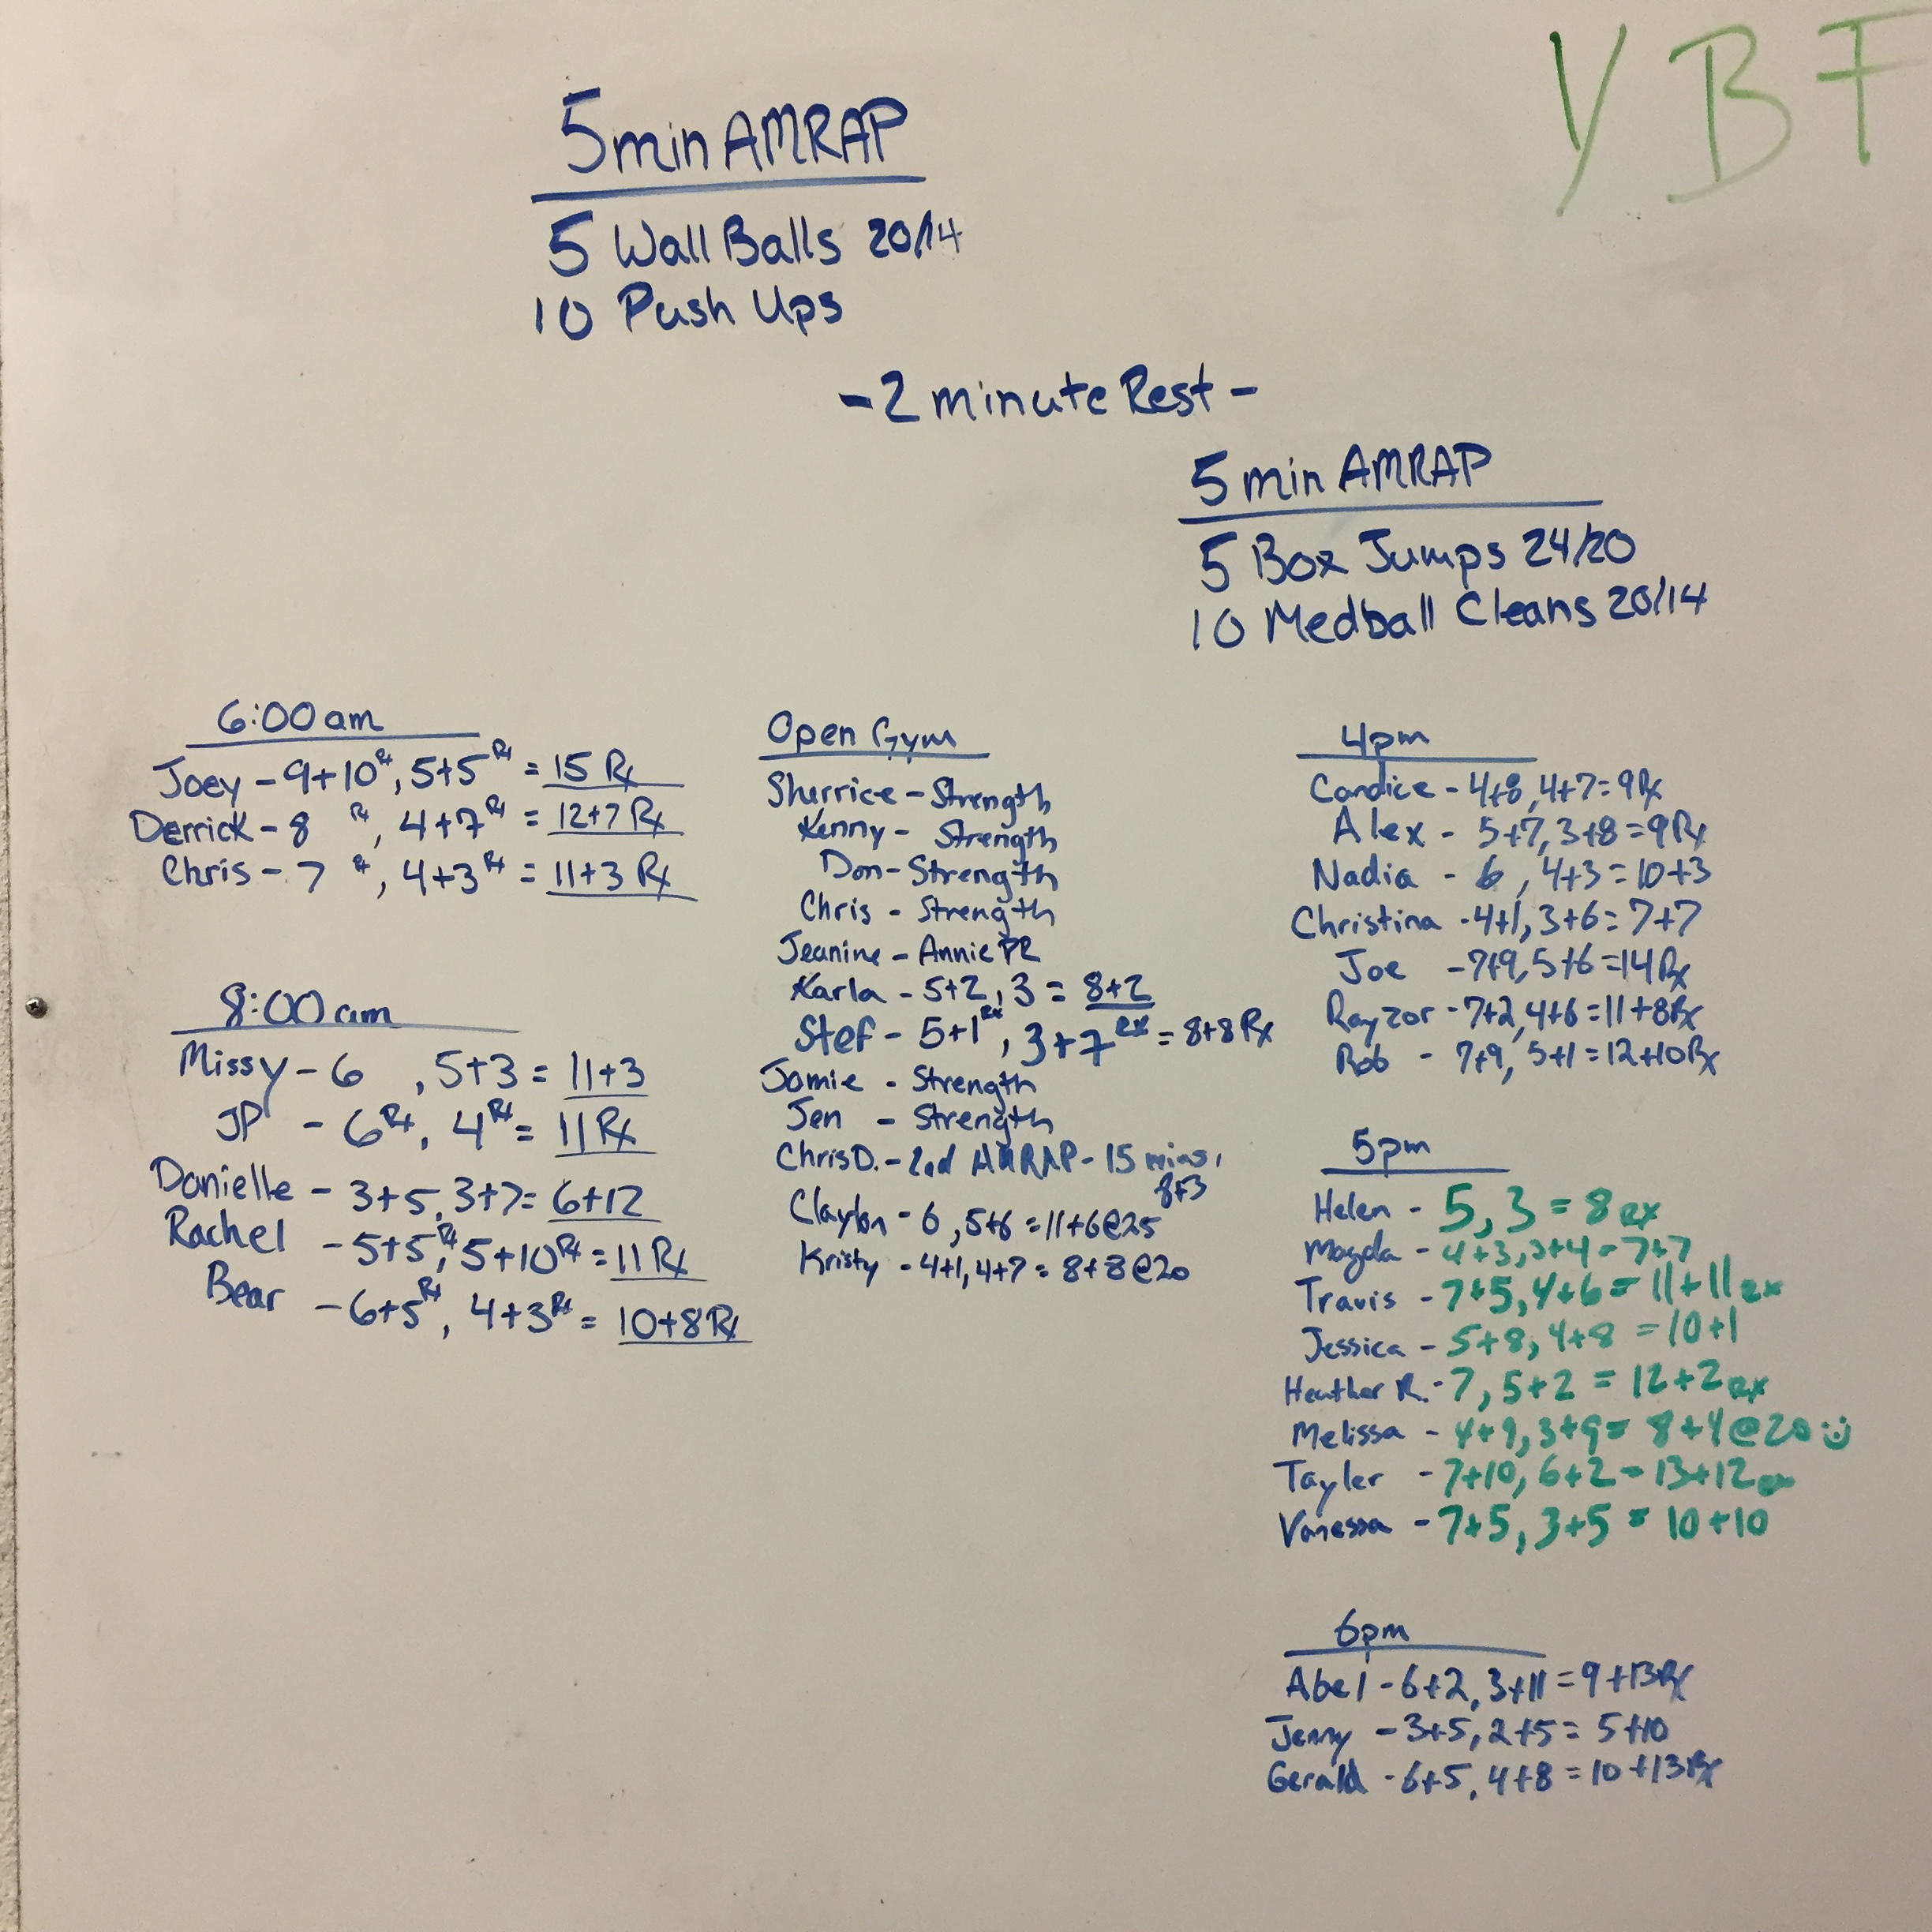 YBF
5min AMRAP
5 Wall Balls 20/14
10 Push Ups
-2 minute Rest -
5 min AMRAP
5 Box Jumps 24/20
10 Medball Cleans 20/14
6:00am
Joey - 9+10 Rx, 5+5 Rx = 15 Rx
Derrick - 8 Rx, 4+7 Rx = 12+7 Rx
Chris - 7 Rx, 4+3 Rx = 11+3 Rx
8:00am
Missy - 6 , 5+3 = 11+3
JP - 6 Rx, 4 Rx = 11 Rx
Danielle - 3+5, 3+7= 6+12
Rachel - 5+5 Rx, 5+10 Rx = 11 Rx
Bear - 6+5 Rx, 4+3 Rx = 10+8 Rx
Open Gym
Sherrice - Strength
Kenny - Strength
Don - Strength
Chris - Strength
Jeanine - Annie PR
Karla - 5+2, 3 = 8+2
Stef - 5+1 Rx, 3+7 RX = 8+8 Rx
Jamie - Strength
Jen - Strength
Chris D. - 2nd AMRAP - 15 mins,
8+3
Clayton - 6 , 5+6 = 11+6@25
Kristy - 4+1, 4+7 = 8+8@20
4pm
Candice - 4+8, 4+7= 9Rx
Alex - 5+7, 3+8 = 9 Rx
Nadia - 6 , 4+3 = 10+3
Christina - 4+1, 3+6 = 7+7
Joe - 7+9, 5+6 = 14 Rx
Rayzor - 7+2, 4+6 = 11+8Rx
Rob - 7+9, 5+1 = 12+10Rx
5pm
Helen - 5, 3 = 8 RX
Magda - 4+3, 3+4 = 7+7
Travis - 7+5, 4+6 = 11+11 RX
Jessica - 5+8, 4+8 = 10+1
Heather R. - 7, 5+2 = 12+2 RX
Melissa - 4+9, 3+9 = 8+4@20
Tayler - 7+10, 6+2 = 13+12
Vanessa - 7+5, 3+5 = 10+10
6pm
Abel - 6+2, 3+11 = 9+13Rx
Jenny - 3+5, 2+5 = 5+10
Gerald - 6+5, 4+8 = 10+13Rx